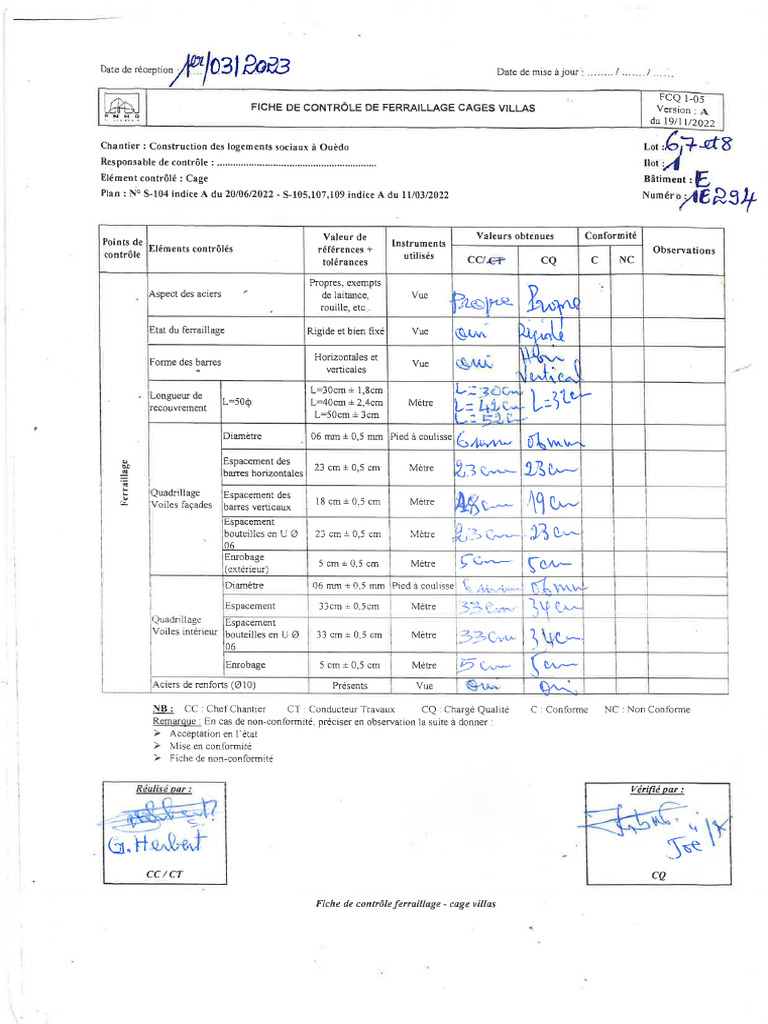 Date de réception : 1er/03/2023
Date de mise à jour : ......... / ....... / ......
RNMG
FICHE DE CONTRÔLE DE FERRAILLAGE CAGES VILLAS
FCQ 1-05
Version : A
du 19/11/2022
Chantier : Construction des logements sociaux à Ouèdo
Lot : 6,7 et 8
Responsable de contrôle : ............................................................
Ilot : 1
Elément contrôlé : Cage
Bâtiment : E
Plan : N° S-104 indice A du 20/06/2022 - S-105,107,109 indice A du 11/03/2022
Numéro : 1E294
Points de contrôle | Eléments contrôlés | Valeur de références + tolérances | Instruments utilisés | Valeurs obtenues | Conformité | Observations
CC/CT | CQ | C | NC
Ferraillage
Aspect des aciers | Propres, exempts de laitance, rouille, etc. | Vue | Propre | Propre
Etat du ferraillage | Rigide et bien fixé | Vue | oui | Rigide
Forme des barres | Horizontales et verticales | Vue | oui | Hori Vertical
Longueur de recouvrement | L=50ϕ | L=30cm ± 1,8cm L=40cm ± 2,4cm L=50cm ± 3cm | Mètre | L=30cm L=42cm L=52cm | L=32cm
Quadrillage Voiles façades
Diamètre | 06 mm ± 0,5 mm | Pied à coulisse | 6mm | 06mm
Espacement des barres horizontales | 23 cm ± 0,5 cm | Mètre | 23cm | 23cm
Espacement des barres verticaux | 18 cm ± 0,5 cm | Mètre | 18cm | 19cm
Espacement bouteilles en U Ø 06 | 23 cm ± 0,5 cm | Mètre | 23cm | 23cm
Enrobage (extérieur) | 5 cm ± 0,5 cm | Mètre | 5cm | 5cm
Quadrillage Voiles intérieur
Diamètre | 06 mm ± 0,5 mm | Pied à coulisse | 6mm | 06mm
Espacement | 33cm ± 0,5cm | Mètre | 33cm | 34cm
Espacement bouteilles en U Ø 06 | 33 cm ± 0,5 cm | Mètre | 33cm | 34cm
Enrobage | 5 cm ± 0,5 cm | Mètre | 5cm | 5cm
Aciers de renforts (Ø10) | Présents | Vue | oui | oui
NB : CC : Chef Chantier CT : Conducteur Travaux CQ : Chargé Qualité C : Conforme NC : Non Conforme
Remarque : En cas de non-conformité, préciser en observation la suite à donner :
➤ Acceptation en l'état
➤ Mise en conformité
➤ Fiche de non-conformité
Réalisé par :
G. Herbert
CC / CT
Vérifié par :
Joe
CQ
Fiche de contrôle ferraillage - cage villas